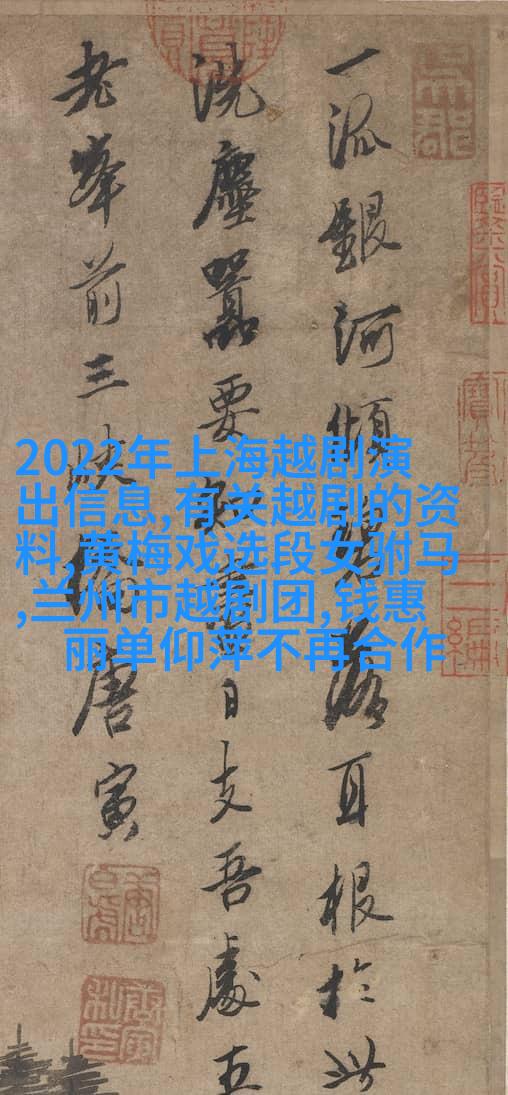 2022年上海越剧演
出信息,有关越剧的资
料,黄梅戏选段女驸马
,兰州市越剧团,钱惠
丽单仰萍不再合作
一派銀河傾碧落耳根於此
洗塵囂要知盡日支吾處五
老峯前三峽橋唐寅